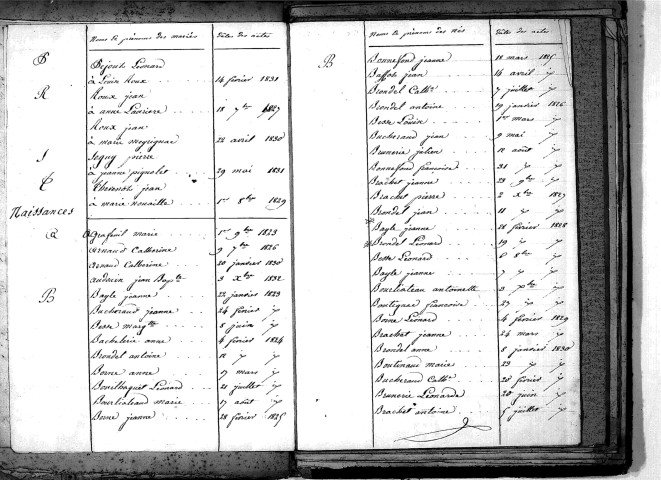 Noms et prénoms des mariés Dates des actes
P Pejout Léonard
à Louis Roux 14 février 1831
R Roux jean
à anne Lansiere 18 7bre 1827
Roux jean
à marie meyrignac 22 avril 1830
S Seguy pierre
à jeanne pignolet 29 mai 1831
T Thevenot jean
à marie nouaille 1er 8bre 1829
Naissances
a Grafeuil marie 1er 9bre 1823
arnaud Catherine 9 7bre 1826
arnaud Catherine 20 janvier 1830
audouin jean Bapte 3 Xbre 1832
B Bayle jeanne 22 janvier 1823
Bucheraud jeanne 24 février
Besse margte 8 juin
Bachelerie anne 4 février 1824
Brondel antoine 11
Borne anne 17 mars
Bouilhaguet Léonard 21 juillet
Bourliataux marie 17 août
Borne jeanne 28 février 1825
Noms et prénoms des nés Dates des actes
B Bonnefond jeanne 18 mars 1825
Baffet jean 14 avril
Brondel Cathe 7 juillet
Brondel antoine 19 janvier 1826
Besse Louise 1er mars
Bucheraud jean 9 mai
Brunerie julien 12 août
Bonnefond françoise 31
Brachet jeanne 23 9bre
Brachet pierre 2 Xbre 1827
Brondel jean 11
Bayle jeanne 28 février 1828
Brondel Léonard 19
Besse Léonard 6 8bre
Bayle jeanne 7
Bourliataux antoinette 3 7bre
Boutegare françoise 27
Borne Léonard 4 février 1829
Brachet jeanne 24 mars
Brondel anne 8 janvier 1830
Boutinaud marie 23
Bucheraud Cathe 20 février
Brunerie Léonarde 20 juin
Brachet antoine 5 juillet